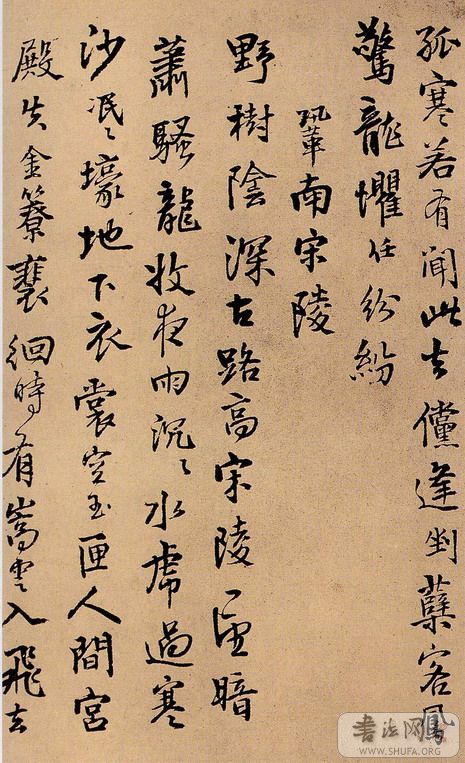 孤寒若有聞此去儻逢剉蘖客鳳
驚龍懼任紛紛
鞏南宋陵
野樹陰深古路高宋陵一望暗
蕭騷龍收夜雨沉〻水虎過寒
沙泯〻壕地下衣裳空玉匣人間宮
殿失金簝裵徊時有嵩雲入飛去
书法网
WWW.SHUFA.ORG